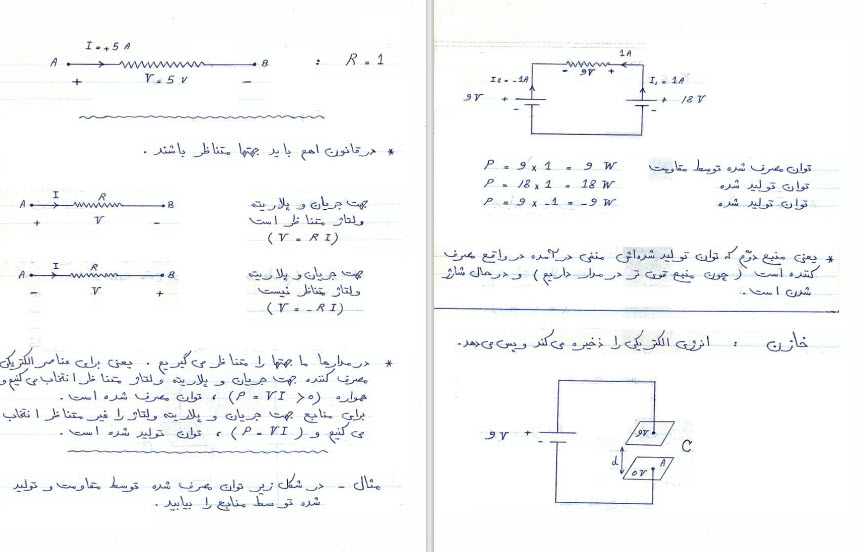 I = +5 A
A B : R = 1
+ V = 5 V -
* در قانون اهم باید جهتها متناظر باشند .
A I R B جهت جریان و پلاریته
+ V - ولتاژ متناظر است
(V = RI)
A I R B جهت جریان و پلاریته
- V + ولتاژ متناظر نیست
(V = -RI)
* در مدارها ما جهتها را متناظر می گیریم . یعنی برای عناصر الکتریکی
مصرف کننده جهت جریان و پلاریته ولتاژ متناظر انتخاب می کنیم و
همواره (P = VI >0) ، توان مصرف شده است .
برای منابع جهت جریان و پلاریته ولتاژ را غیر متناظر انتخاب
می کنیم و (P = VI) ، توان تولید شده است .
مثال - در شکل زیر توان مصرف شده توسط مقاومت و تولید
شده توسط منابع را بیابید .
1A
- 9V +
I2 = -1A I1 = 1A
9V + - + 18 V -
P = 9 x 1 = 9 W توان مصرف شده توسط مقاومت
P = 18 x 1 = 18 W توان تولید شده
P = 9 x -1 = -9 W توان تولید شده
* یعنی منبع دوّم که توان تولید شده‌اش منفی در آمده در واقع مصرف
کننده است ( چون منبع قوی تر در مدار داریم ) و در حال شارژ
شدن است .
خازن : انرژی الکتریکی را ذخیره می کند و پس می دهد.
9V + -
9V C
d A
0V